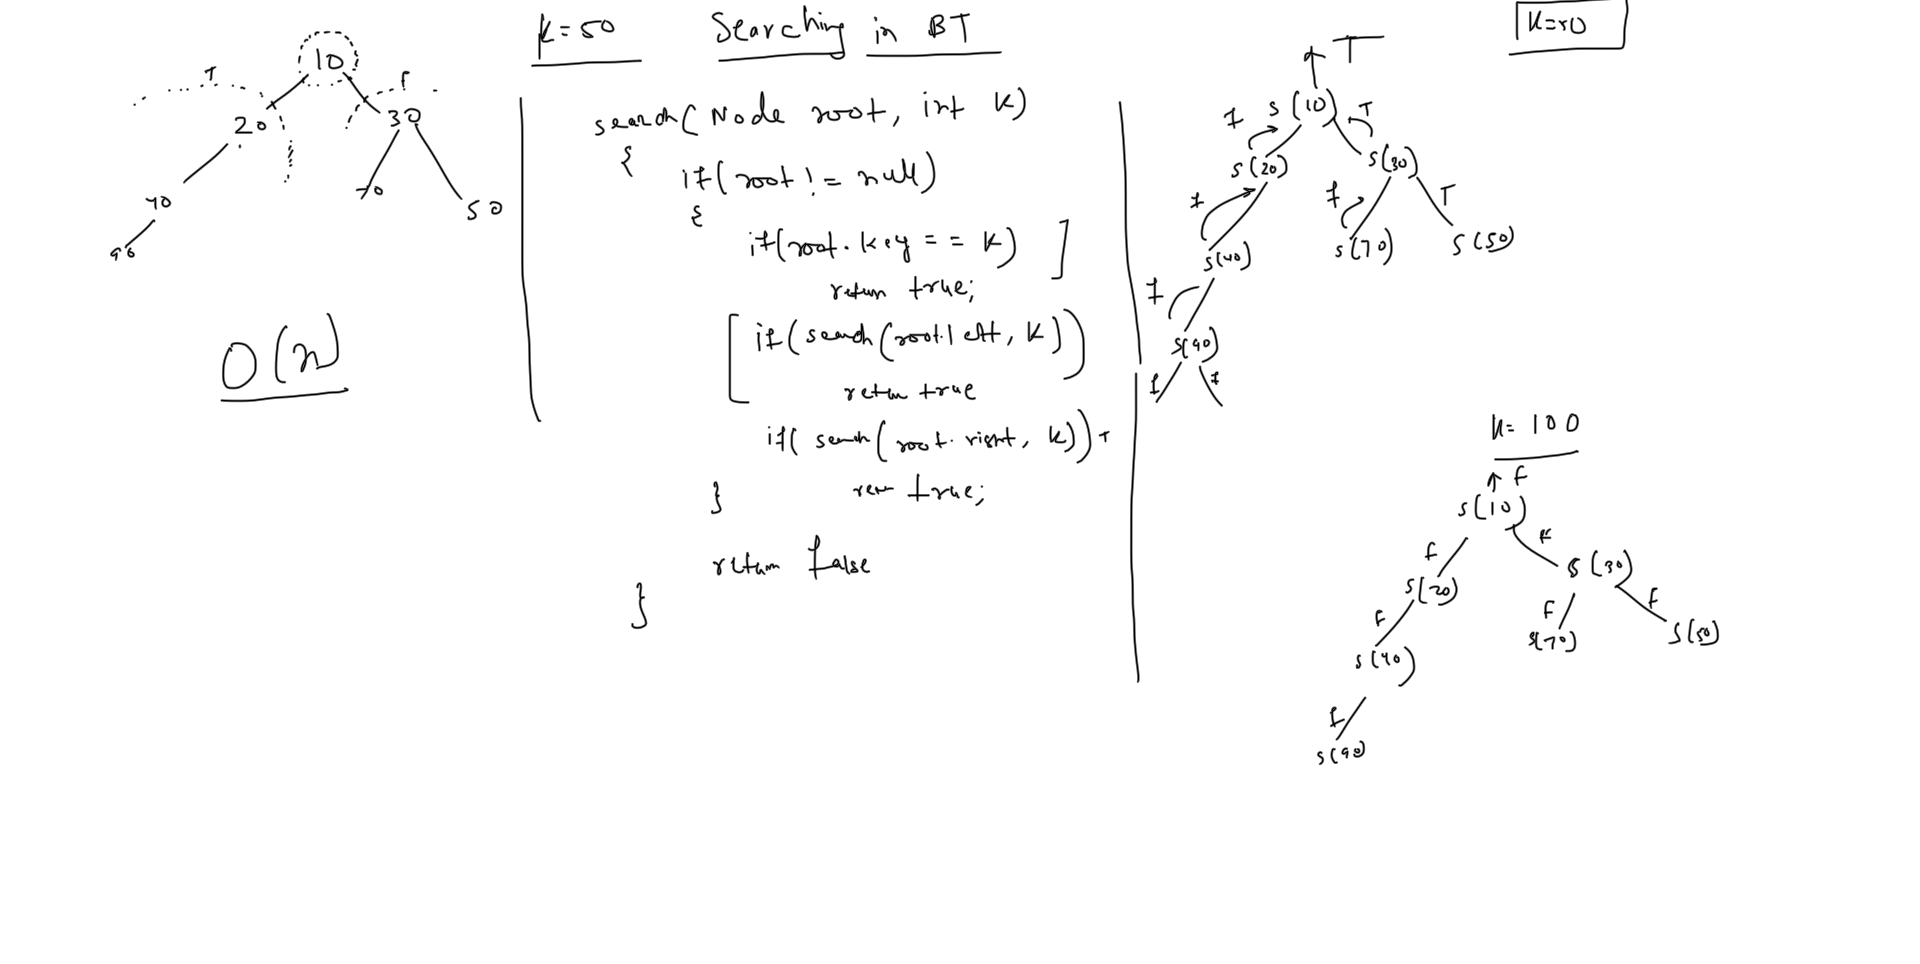 k=50 Searching in BT
K=50
10
T F
20 30
40 70 50
90
O(n)
search(Node root, int k)
{
if(root != null)
{
if(root.key == k)
return true;
if(search(root.left, k))
return true
if(search(root.right, k)) T
} return true;
return false
}
T
f s(10) T
s(20) s(30)
f f T
s(40) s(70) s(50)
f
s(90)
f f
k=100
F
s(10)
F F
s(20) s(30)
F F F
s(40) s(70) s(50)
f
s(90)